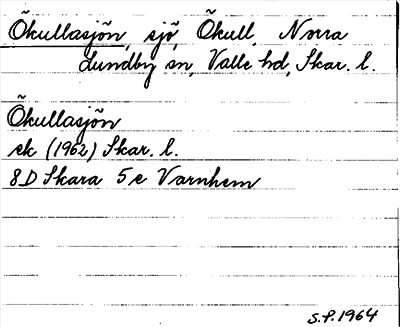 Ökullasjön, sjö, Ökull, Norra
Lundby sn, Valle hd, Skar. l.
Ökullasjön
ek (1962) Skar. l.
8D Skara 5e Varnhem
S.P. 1964